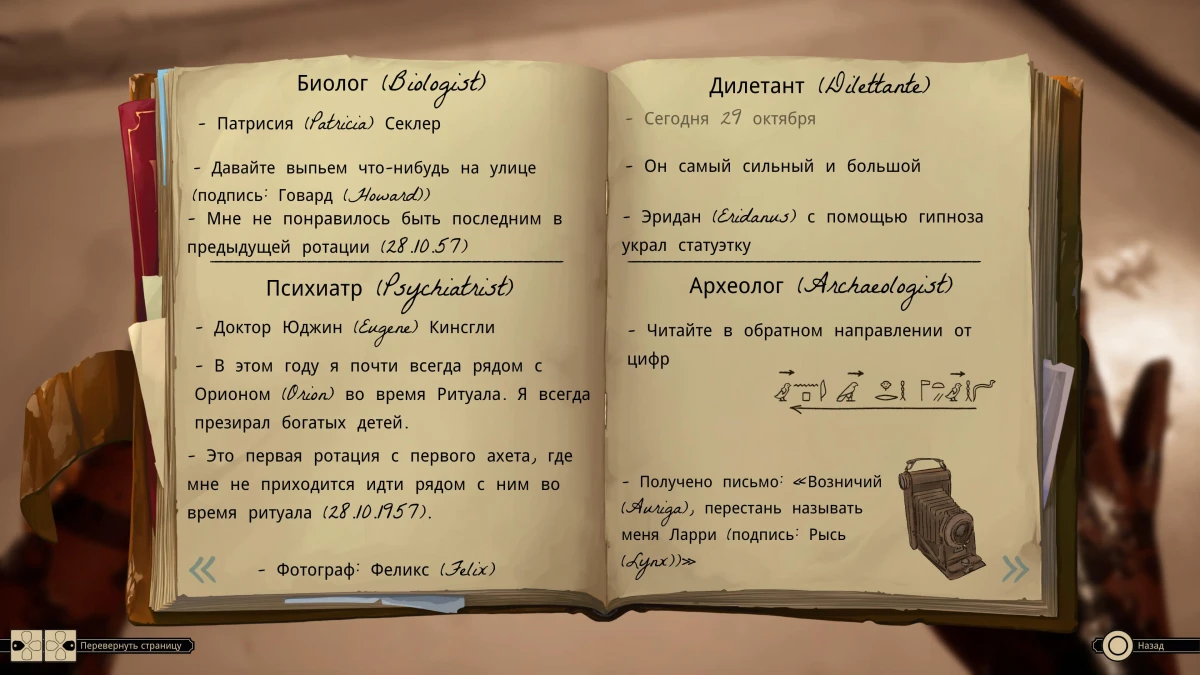 Биолог (Biologist)
- Патрисия (Patricia) Секлер
- Давайте выпьем что-нибудь на улице
(подпись: Говард (Howard))
- Мне не понравилось быть последним в
предыдущей ротации (28.10.57)
Психиатр (Psychiatrist)
- Доктор Юджин (Eugene) Кинсгли
- В этом году я почти всегда рядом с
Орионом (Orion) во время Ритуала. Я всегда
презирал богатых детей.
- Это первая ротация с первого ахета, где
мне не приходится идти рядом с ним во
время ритуала (28.10.1957).
- Фотограф: Феликс (Felix)
Дилетант (Dilettante)
- Сегодня 29 октября
- Он самый сильный и большой
- Эридан (Eridanus) с помощью гипноза
украл статуэтку
Археолог (Archaeologist)
- Читайте в обратном направлении от
цифр
- Получено письмо: «Возничий
(Auriga), перестань называть
меня Ларри (подпись: Рысь
(Lynx))»
Перевернуть страницу
Назад